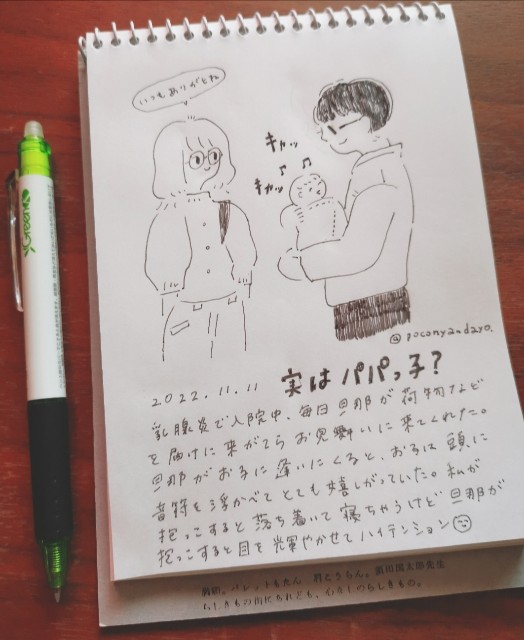 いつもありがとね
キャッ
キャッ
Green
@poconyandayo.
実はパパっ子?
2022.11.11
乳腺炎で入院中、毎日旦那が荷物など
を届けに来がてらお見舞いに来てくれた。
旦那がお子に逢いにくると、お子は頭に
音符を浮かべてとても嬉しがっていた。私が
抱っこすると落ち着いて寝ちゃうけど旦那が
抱っこすると目を輝やかせてハイテンション